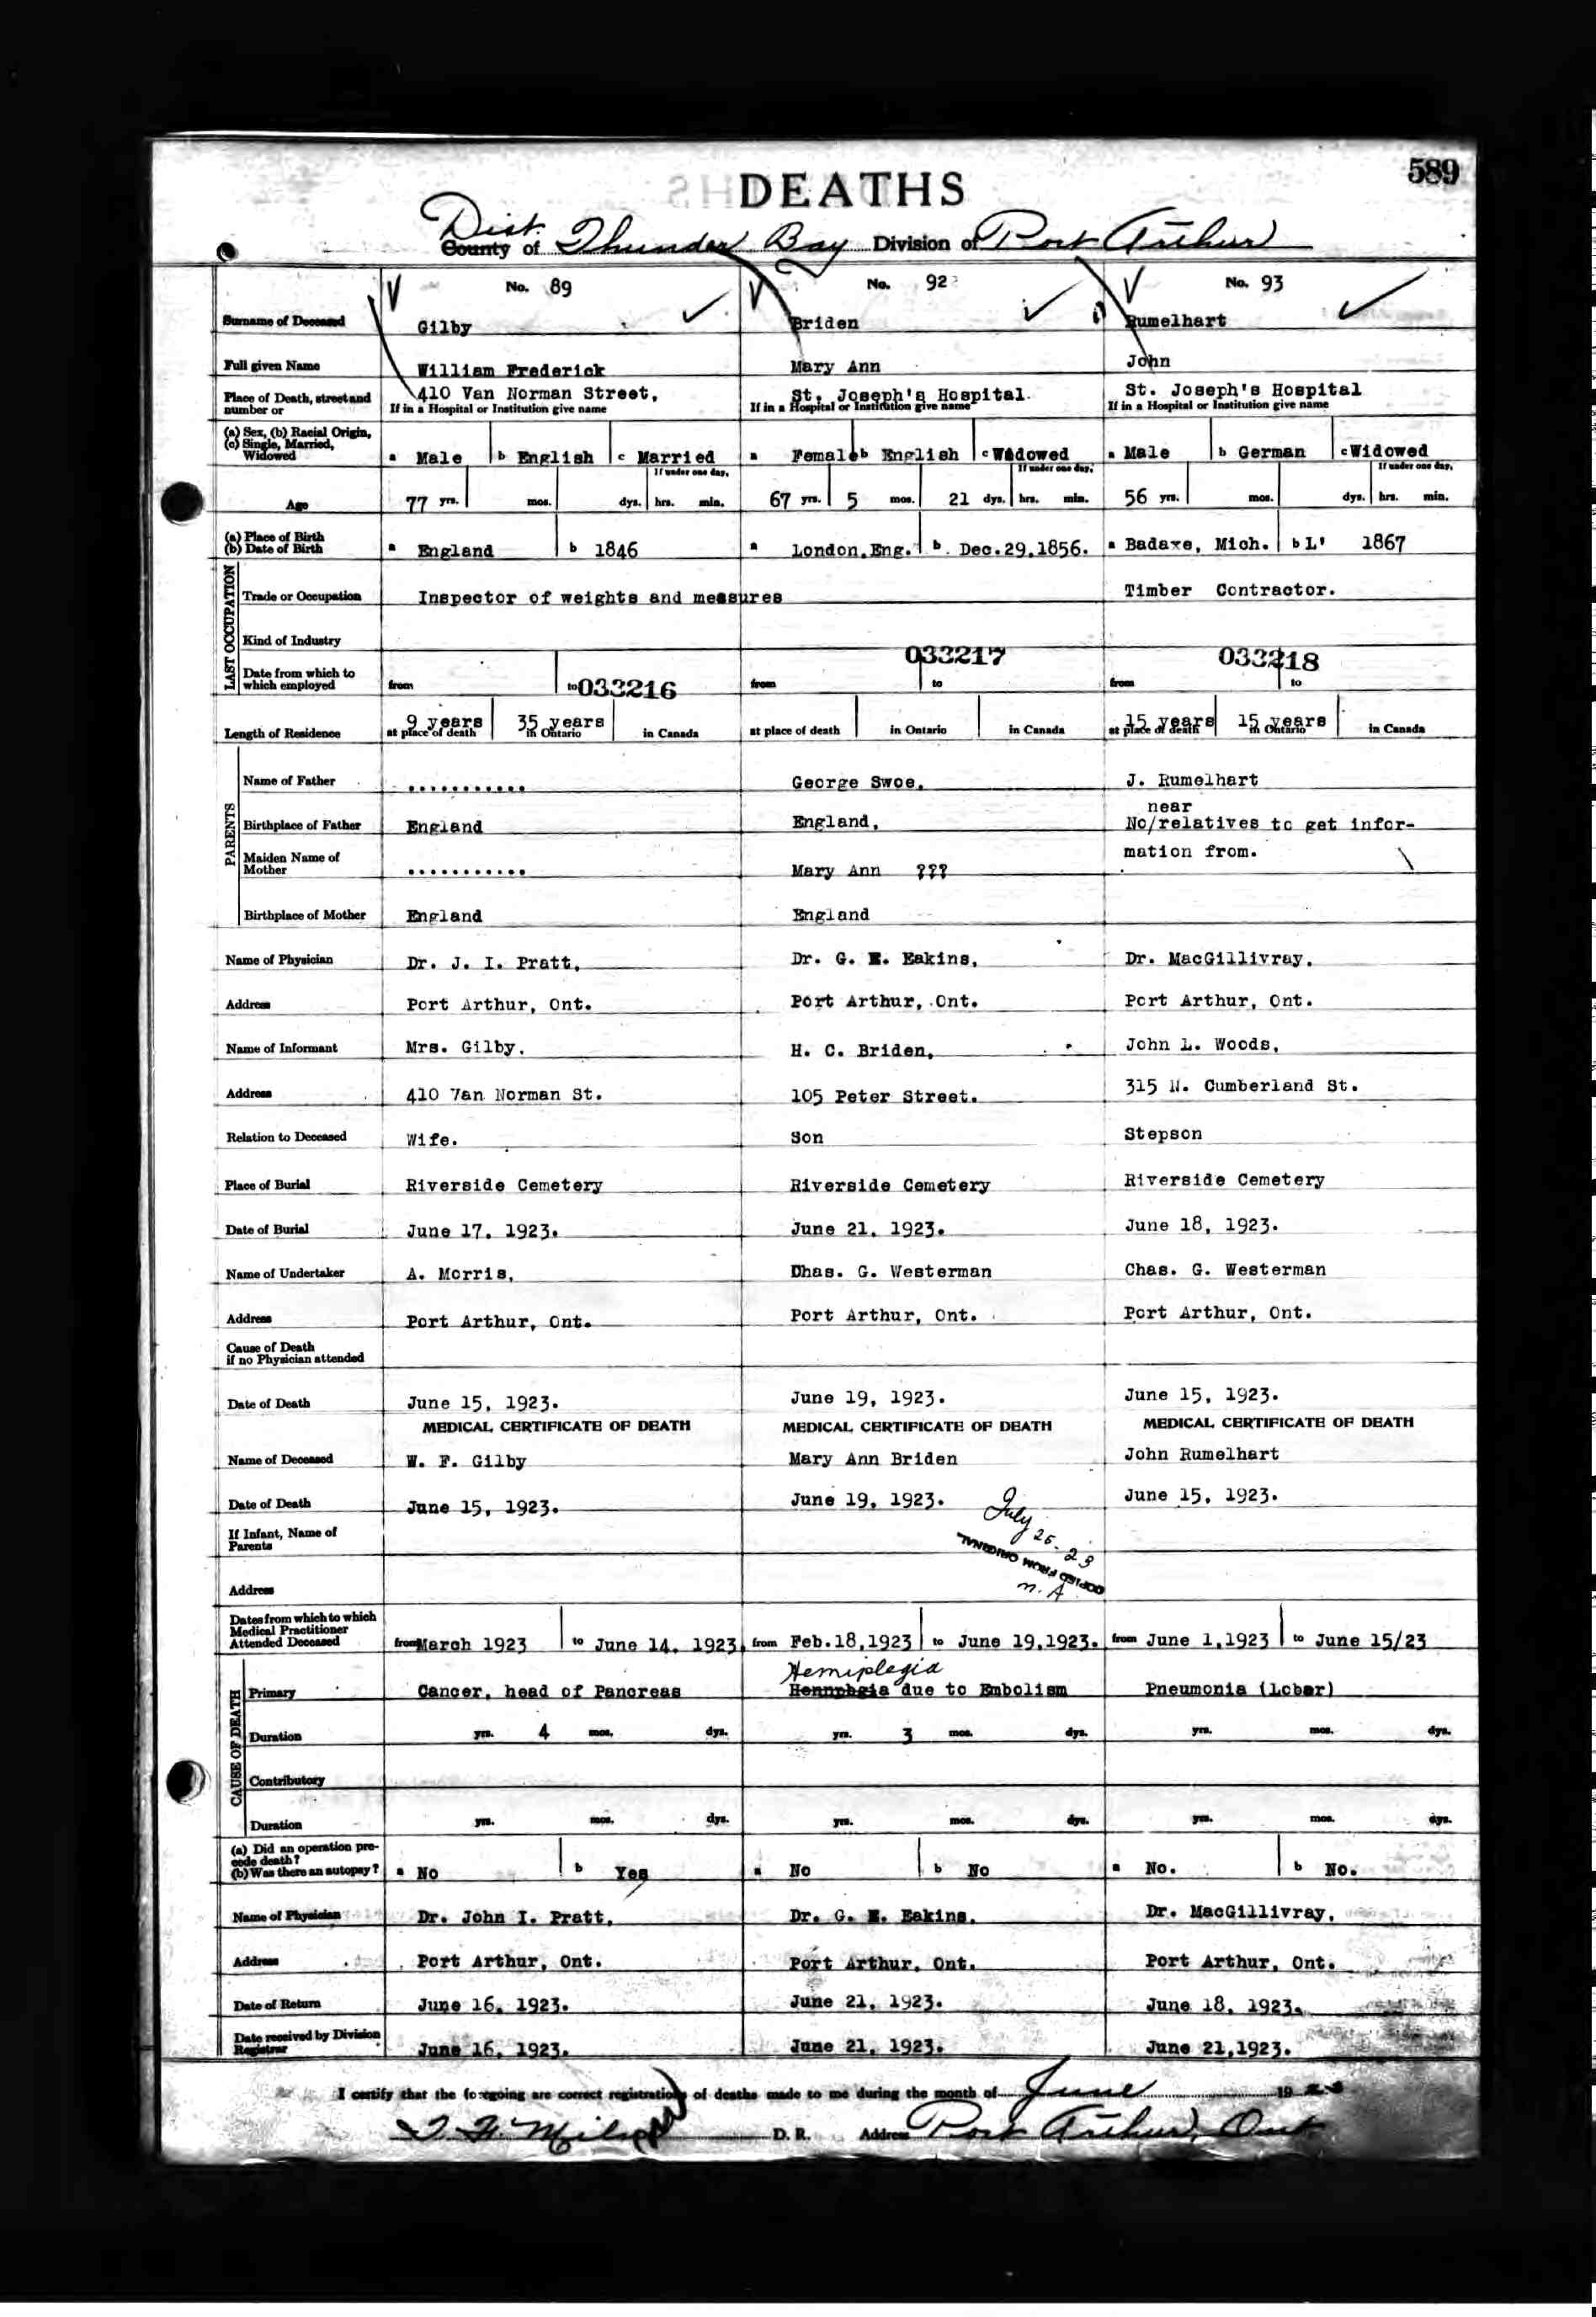 589
DEATHS
Dist.
County of Thunder Bay Division of Port Arthur
No. 89 No. 92 No. 93
Surname of Deceased Gilby Briden Rumelhart
Full given Name William Frederick Mary Ann John
Place of Death, street and number or 410 Van Norman Street, St. Joseph's Hospital. St. Joseph's Hospital
If in a Hospital or Institution give name If in a Hospital or Institution give name If in a Hospital or Institution give name
(a) Sex, (b) Racial Origin,
(c) Single, Married,
Widowed a Male b English c Married a Female b English c Widowed a Male b German c Widowed
If under one day, If under one day, If under one day,
Age 77 yrs. mos. dys. hrs. min. 67 yrs. 5 mos. 21 dys. hrs. min. 56 yrs. mos. dys. hrs. min.
(a) Place of Birth
(b) Date of Birth a England b 1846 a London,Eng. b Dec.29,1856. a Badaxe, Mich. b L' 1867
LAST OCCUPATION
Trade or Occupation Inspector of weights and measures Timber Contractor.
Kind of Industry
Date from which to
which employed from to 033216 from 033217 to from 033218 to
Length of Residence 9 years at place of death 35 years in Ontario in Canada at place of death in Ontario in Canada 15 years at place of death 15 years in Ontario in Canada
PARENTS
Name of Father ........... George Swoe, J. Rumelhart
near
Birthplace of Father England England, No/relatives to get infor-
Maiden Name of
Mother ........... Mary Ann ??? mation from.
Birthplace of Mother England England
Name of Physician Dr. J. I. Pratt, Dr. G. E. Eakins, Dr. MacGillivray,
Address Port Arthur, Ont. Port Arthur, Ont. Port Arthur, Ont.
Name of Informant Mrs. Gilby, H. C. Briden, John L. Woods,
Address 410 Van Norman St. 105 Peter Street. 315 N. Cumberland St.
Relation to Deceased Wife. Son Stepson
Place of Burial Riverside Cemetery Riverside Cemetery Riverside Cemetery
Date of Burial June 17, 1923. June 21, 1923. June 18, 1923.
Name of Undertaker A. Morris, Dhas. G. Westerman Chas. G. Westerman
Address Port Arthur, Ont. Port Arthur, Ont. Port Arthur, Ont.
Cause of Death
if no Physician attended
Date of Death June 15, 1923. June 19, 1923. June 15, 1923.
MEDICAL CERTIFICATE OF DEATH MEDICAL CERTIFICATE OF DEATH MEDICAL CERTIFICATE OF DEATH
Name of Deceased W. F. Gilby Mary Ann Briden John Rumelhart
Date of Death June 15, 1923. June 19, 1923. June 15, 1923.
July 25-23
COPIED FROM ORIGINAL
N. A
If Infant, Name of
Parents
Address
Dates from which to which
Medical Practitioner
Attended Deceased from March 1923 to June 14, 1923. from Feb.18,1923 to June 19,1923. from June 1,1923 to June 15/23
CAUSE OF DEATH
Hemiplegia
Primary Cancer, head of Pancreas due to Embolism Pneumonia (Lobar)
Duration yrs. 4 mos. dys. yrs. 3 mos. dys. yrs. mos. dys.
Contributory
Duration yrs. mos. dys. yrs. mos. dys. yrs. mos. dys.
(a) Did an operation pre-
cede death?
(b) Was there an autopsy? a No b Yes a No b No a No. b No.
Name of Physician Dr. John I. Pratt, Dr. G. E. Eakins, Dr. MacGillivray,
Address Port Arthur, Ont. Port Arthur, Ont. Port Arthur, Ont.
Date of Return June 16, 1923. June 21, 1923. June 18, 1923.
Date received by Division
Registrar June 16, 1923. June 21, 1923. June 21,1923.
I certify that the foregoing are correct registrations of deaths made to me during the month of June 1923
D. R. Address Port Arthur, Ont